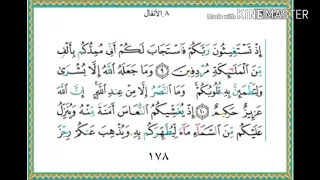 ٨ـ الأنفال
Made With
KINEMASTER
إِذْ تَسْتَغِيثُونَ رَبَّكُمْ فَاسْتَجَابَ لَكُمْ أَنِّي مُمِدُّكُم بِأَلْفٍ
مِّنَ الْمَلَائِكَةِ مُرْدِفِينَ ٩ وَمَا جَعَلَهُ اللَّهُ إِلَّا بُشْرَىٰ
وَلِتَطْمَئِنَّ بِهِ قُلُوبُكُمْ وَمَا النَّصْرُ إِلَّا مِنْ عِندِ اللَّهِ إِنَّ اللَّهَ
عَزِيزٌ حَكِيمٌ ١٠ إِذْ يُغَشِّيكُمُ النُّعَاسَ أَمَنَةً مِّنْهُ وَيُنَزِّلُ
عَلَيْكُم مِّنَ السَّمَاءِ مَاءً لِّيُطَهِّرَكُم بِهِ وَيُذْهِبَ عَنكُمْ رِجْزَ
١٧٨